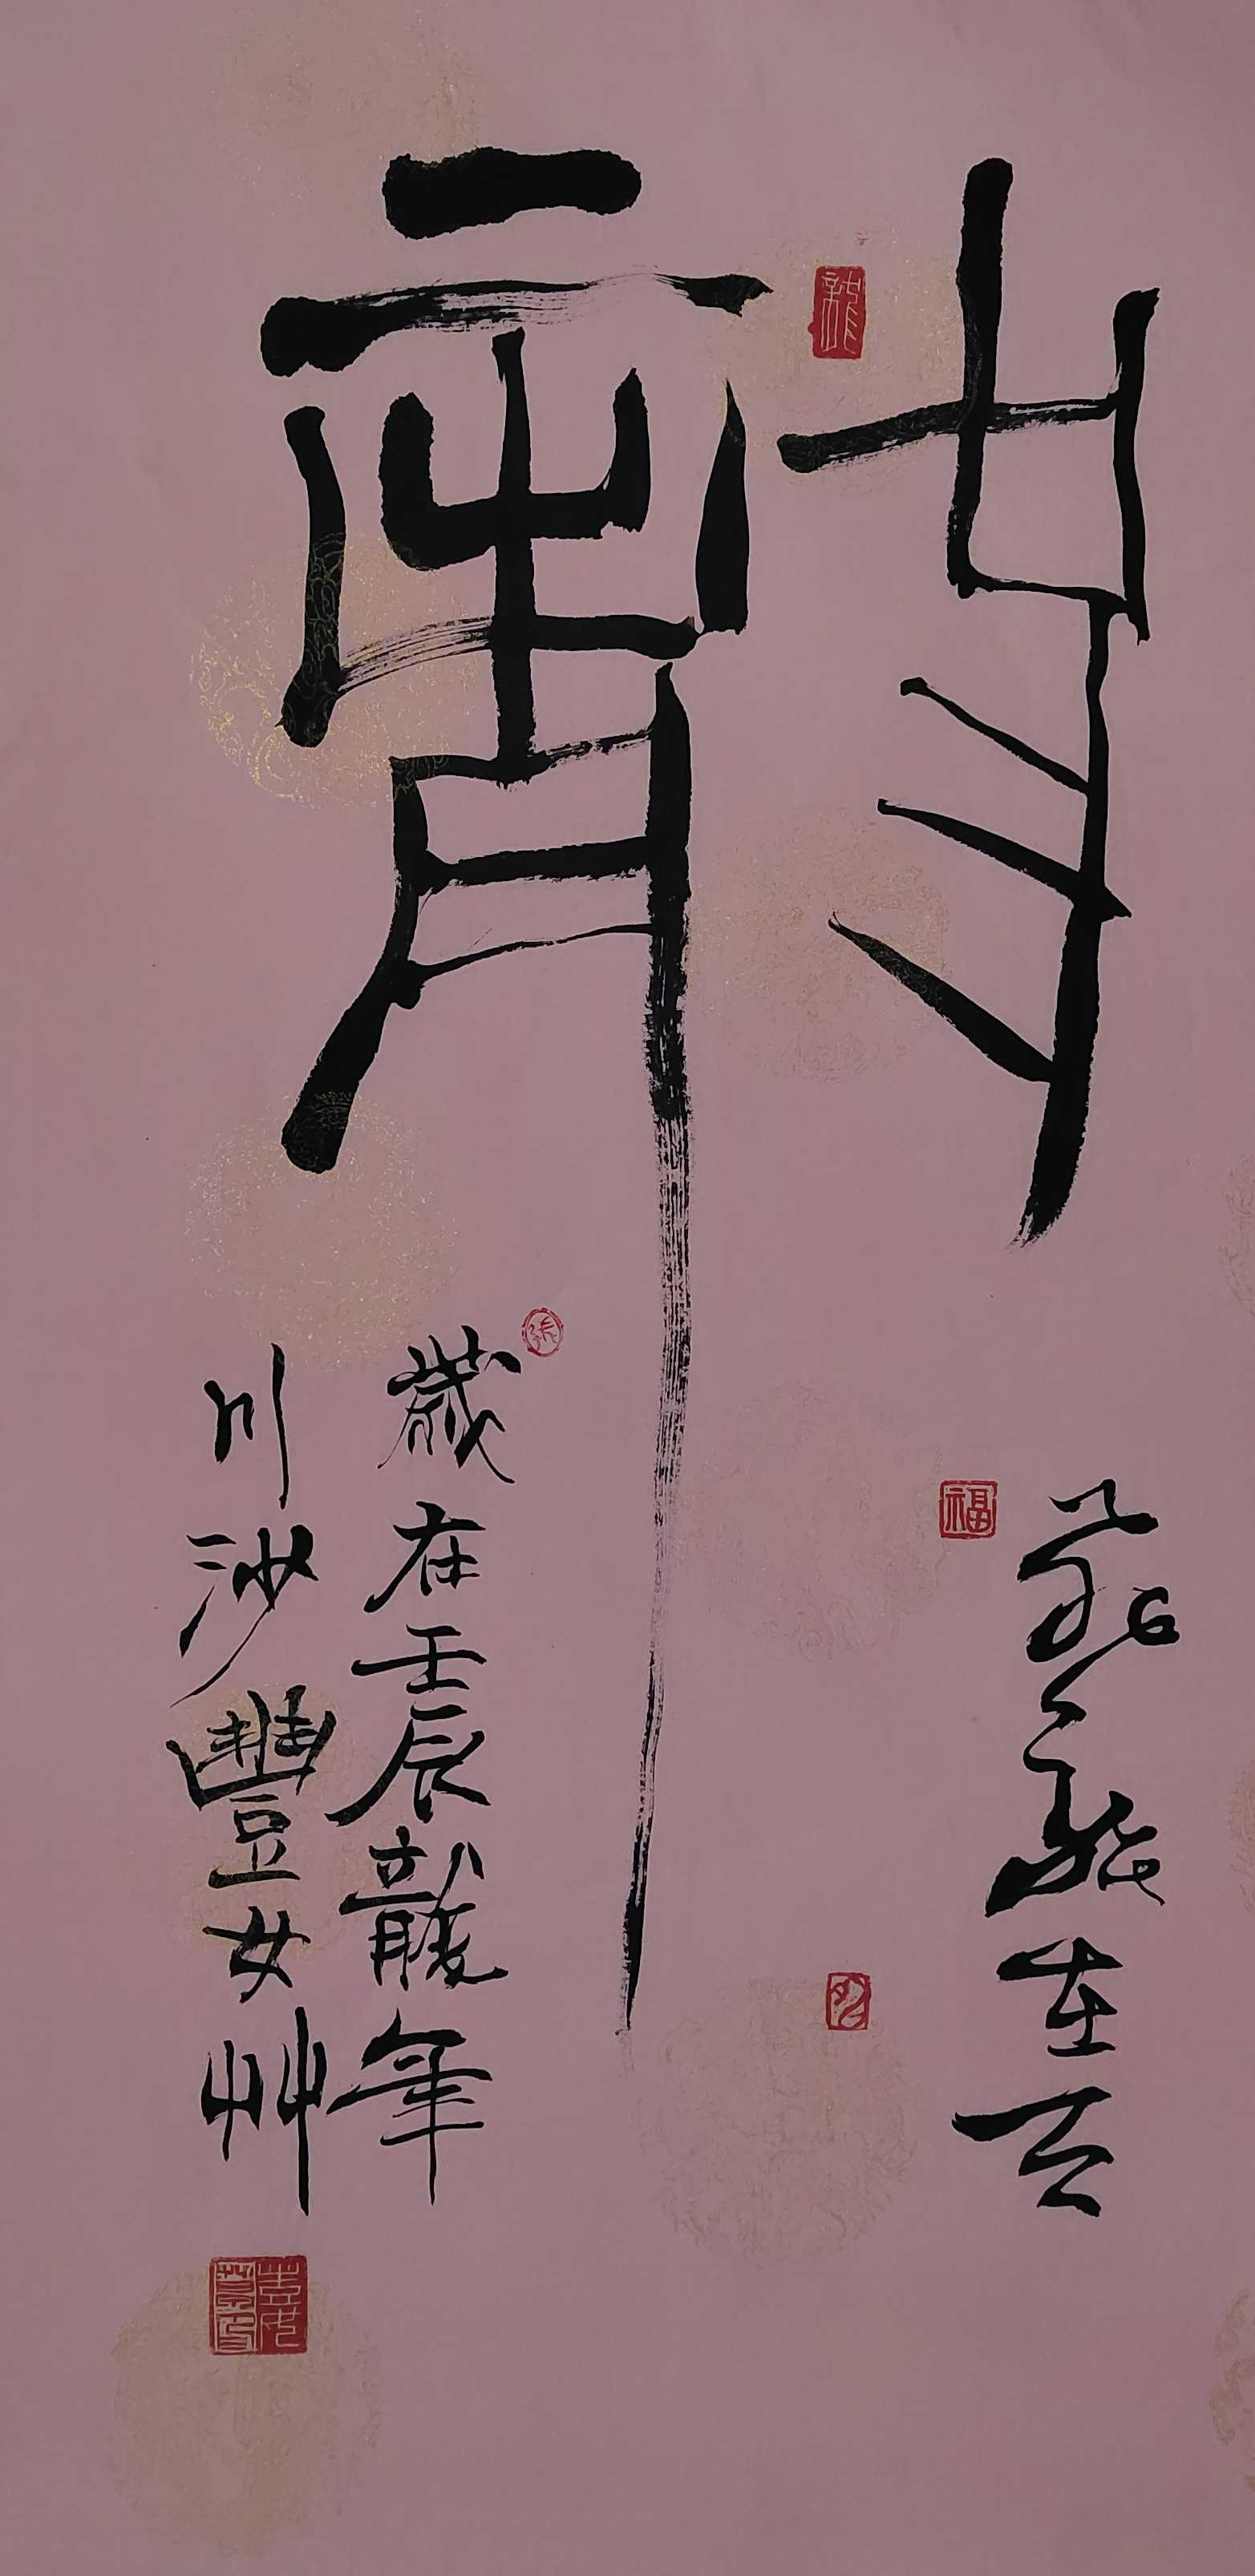 龍
龍
福
飛龍在天
歲在壬辰龍年
川沙豐女艸